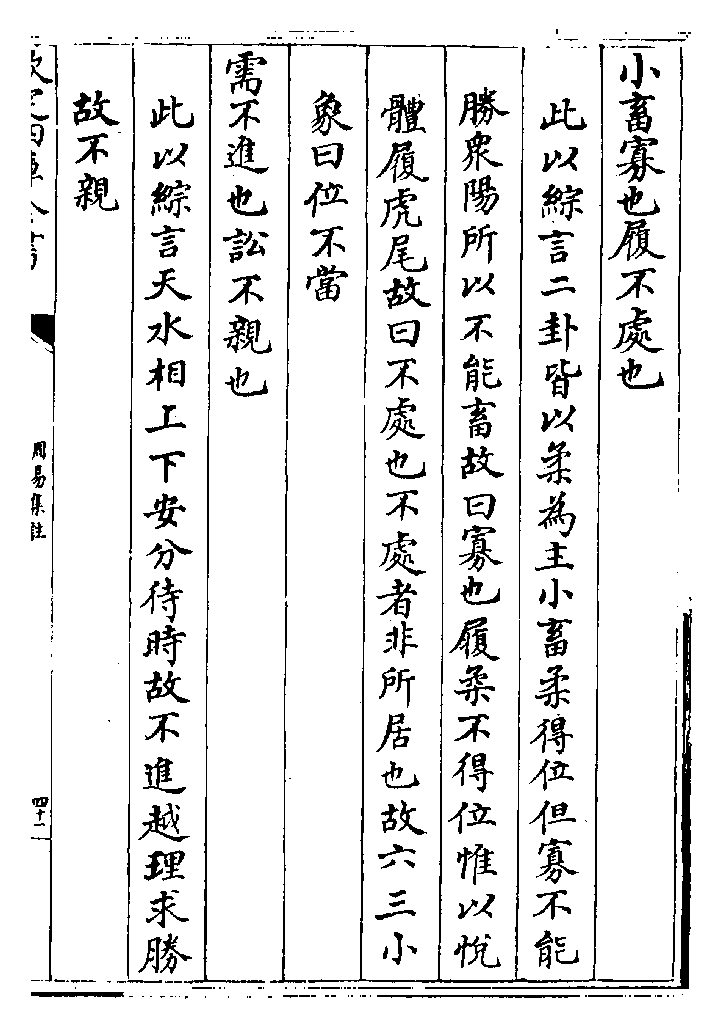 小畜寡也履不處也
此以綜言二卦皆以柔為主小畜柔得位但寡不能
勝衆陽所以不能畜故曰寡也履柔不得位惟以悅
體履虎尾故曰不處也不處者非所居也故六三小
象曰位不當
需不進也訟不親也
此以綜言天水相上下安分待時故不進越理求勝
故不親
周易集註
四十一